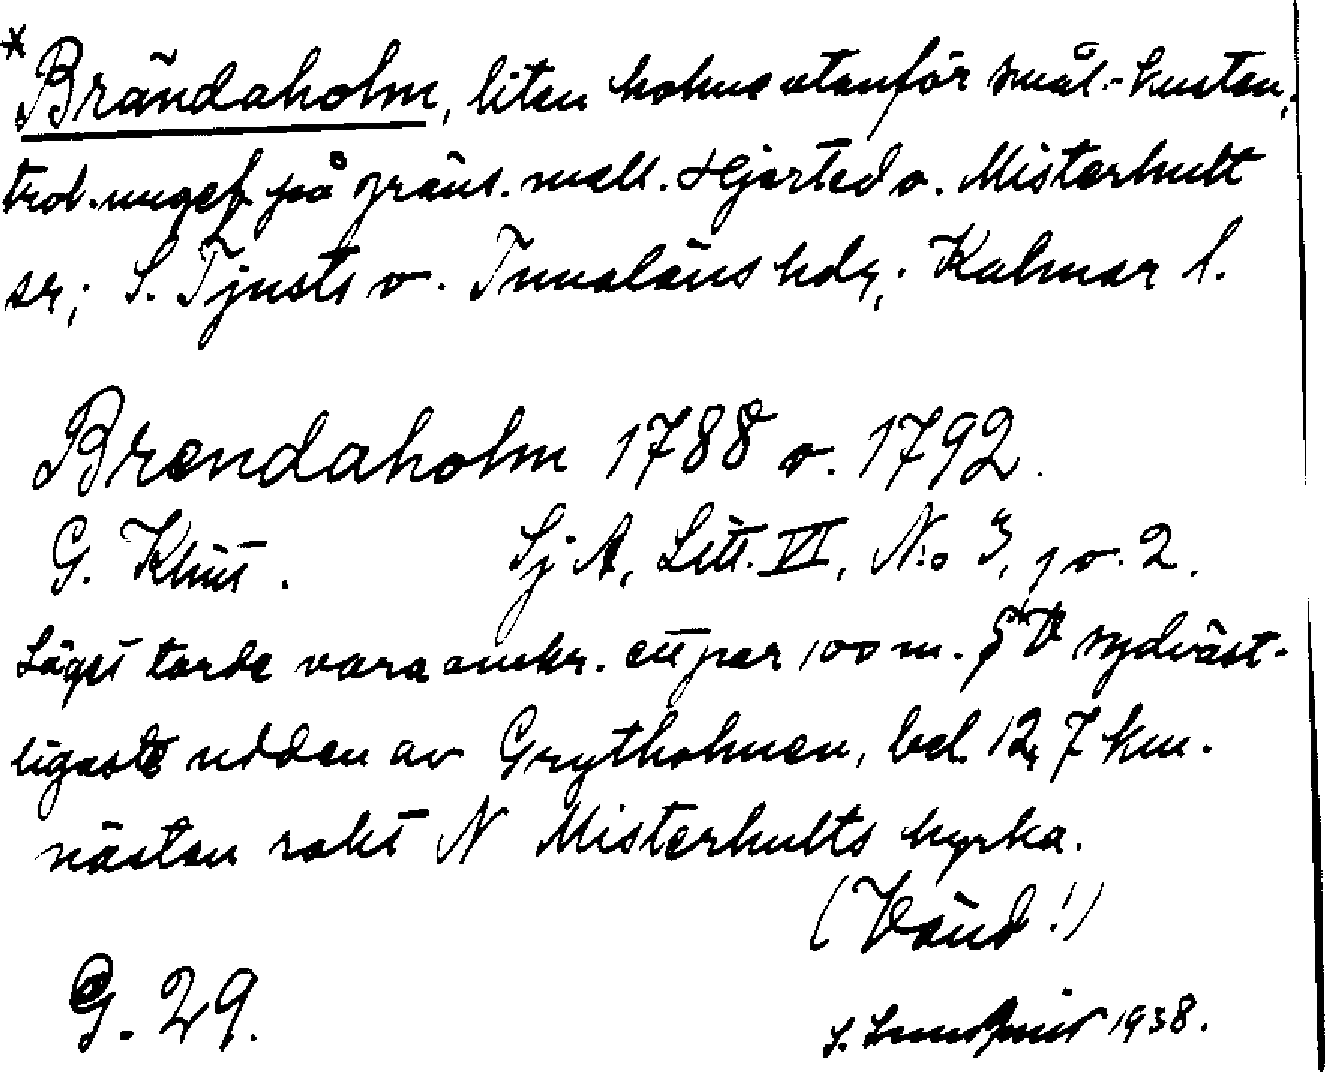 * Brändaholm, liten holme utanför smål.-kusten,
trol. ungef. på gräns. mell. Hjorted o. Misterhult
sr; S. Tjusts o. Tunaläns hdr; Kalmar l.
Brendaholm 1788 o. 1792.
G. Klint. SjA, Litt. VI, N:o 3, 1 o. 2.
Läget torde vara omkr. ett par 100 m. SV sydväst-
ligaste udden av Grytholmen, bel. 12,7 km.
nästan rakt N Misterhults kyrka.
(Vänd!)
G. 29.
S. 1938.